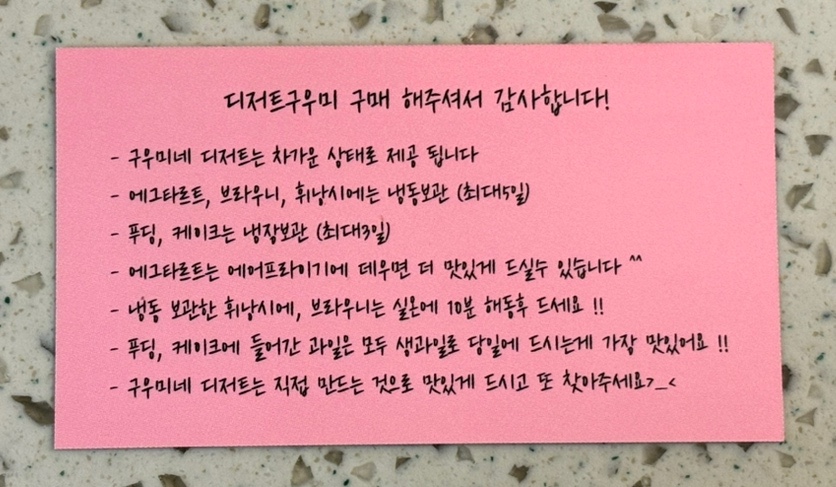 디저트구우미 구매 해주셔서 감사합니다!
- 구우미네 디저트는 차가운 상태로 제공 됩니다
- 에그타르트, 브라우니, 휘낭시에는 냉동보관 (최대5일)
- 푸딩, 케이크는 냉장보관 (최대3일)
- 에그타르트는 에어프라이기에 데우면 더 맛있게 드실수 있습니다 ^^
- 냉동 보관한 휘낭시에, 브라우니는 실온에 10분 해동후 드세요 !!
- 푸딩, 케이크에 들어간 과일은 모두 생과일로 당일에 드시는게 가장 맛있어요 !!
- 구우미네 디저트는 직접 만드는 것으로 맛있게 드시고 또 찾아주세요>_<